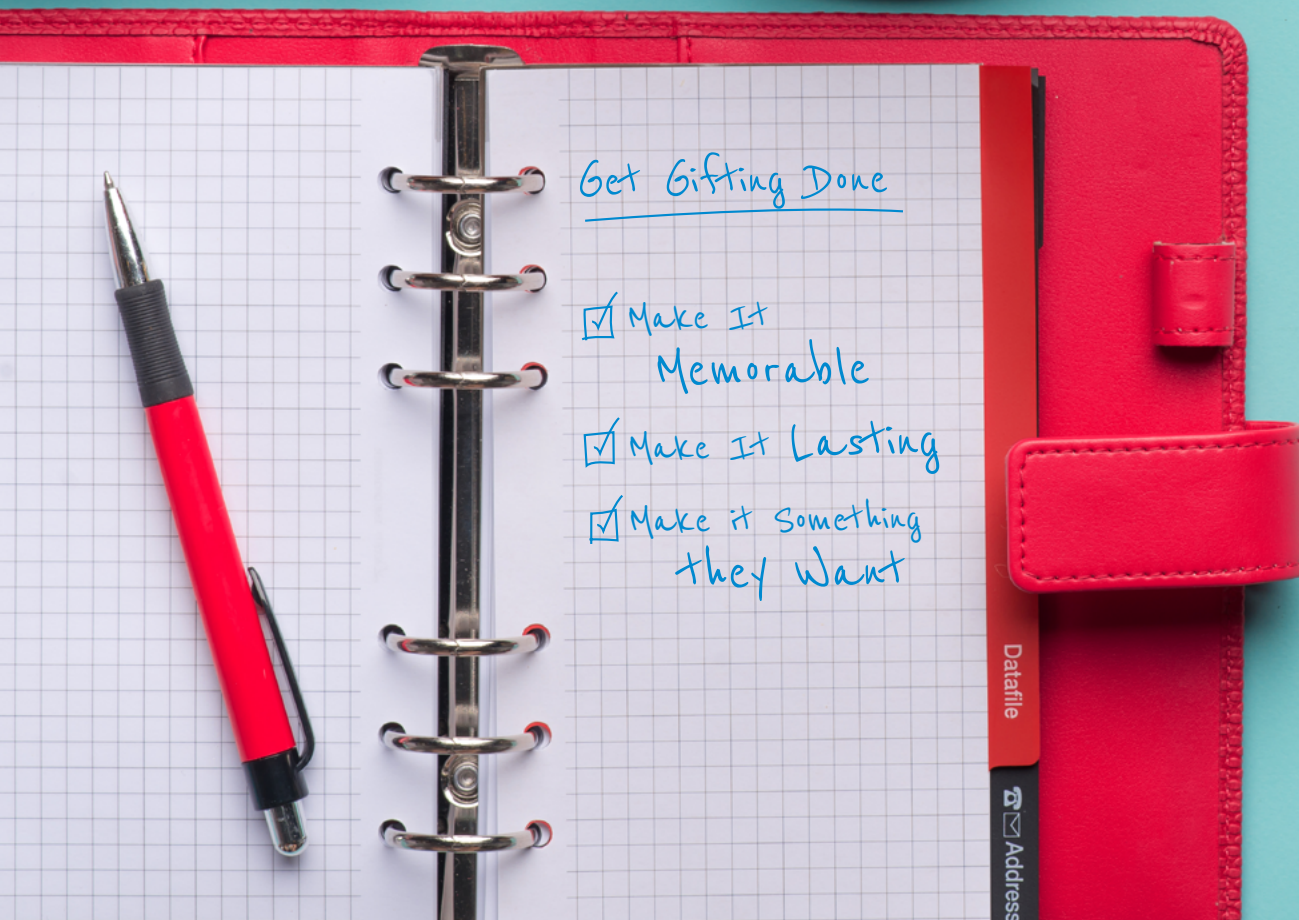 Get Gifting Done
Make It
Memorable
Make It Lasting
Make it Something
they Want
Datafile
Address